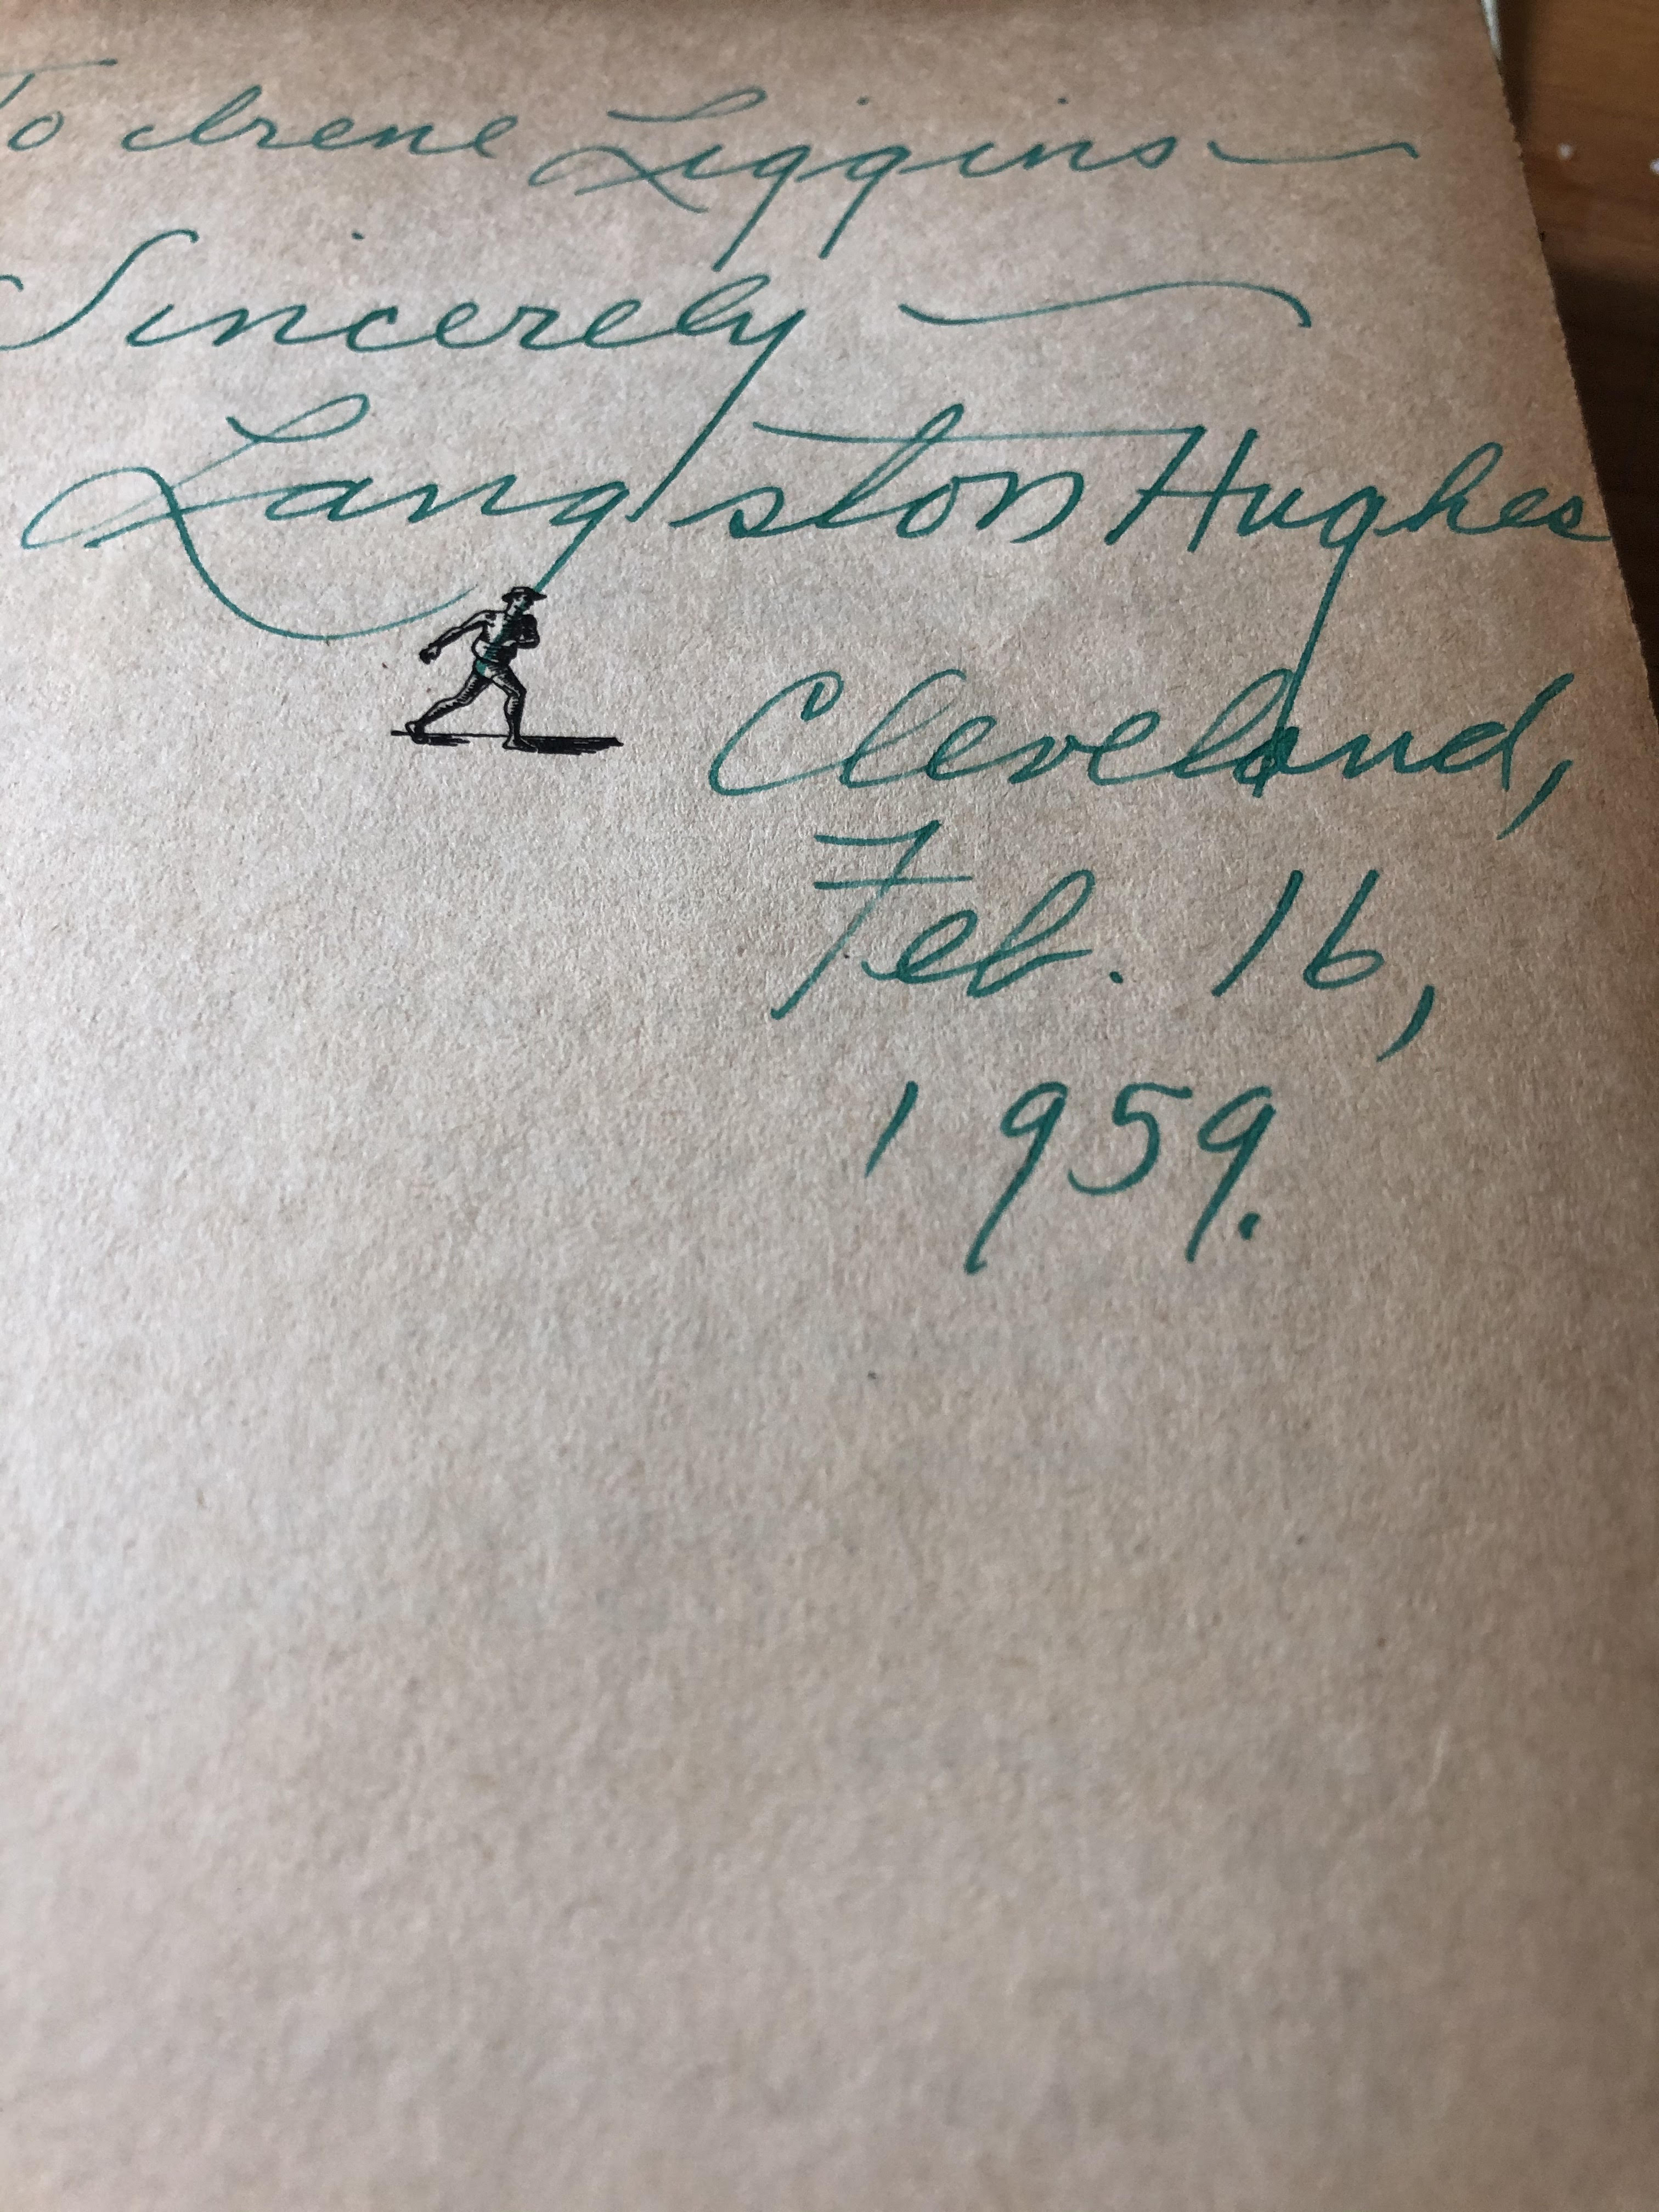 To Irene Liggins—
Sincerely —
Langston Hughes
Cleveland,
Feb. 16,
1959.